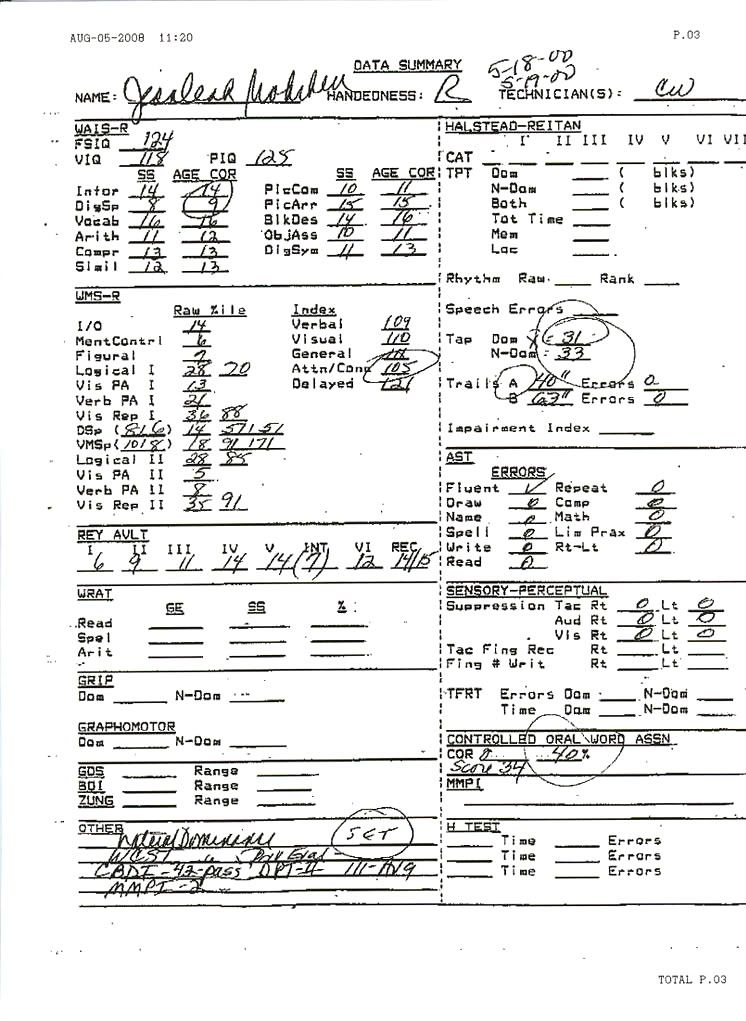 AUG-05-2008 11:20 P.03
DATA SUMMARY
5-18-00
5-19-00
NAME: HANDEDNESS: R TECHNICIAN(S): CW
WAIS-R
FSIQ 124
VIQ 118 PIQ 125
SS AGE COR SS AGE COR
Infor 14 14 PicCom 10 11
DigSp 8 9 PicArr 15 15
Vocab 16 16 BlkDes 14 16
Arith 11 12 ObjAss 10 11
Compr 13 13 DigSym 11 13
Simil 12 13
WMS-R
Raw %ile Index
I/O 14 Verbal 109
MentContrl 6 Visual 110
Figural 7 General 111
Logical I 28 70 Attn/Conc 105
Vis PA I 13 Delayed 121
Verb PA I 21
Vis Rep I 36 88
DSp (8/6) 14 57/51
VMSp(10/8) 18 91/71
Logical II 28 85
Vis PA II 5
Verb PA II 8
Vis Rep II 35 91
REY AVLT
I II III IV V INT VI REC
6 9 11 14 14 (7) 12 14/15
WRAT
GE SS %
Read
Spel
Arit
GRIP
Dom N-Dom
GRAPHOMOTOR
Dom N-Dom
GDS Range
BDI Range
ZUNG Range
OTHER
Lateral Dominance SET
WCST
CADI-42-pass DPT-4
MMPI-2
HALSTEAD-REITAN
I II III IV V VI VII
CAT
TPT Dom ( blks)
N-Dom ( blks)
Both ( blks)
Tot Time
Mem
Loc
Rhythm Raw Rank
Speech Errors
Tap Dom = 31
N-Dom = 33
Trails A 40" Errors 0
B 63" Errors 0
Impairment Index
AST
ERRORS
Fluent ✓ Repeat 0
Draw 0 Comp 0
Name 0 Math 0
Spell 0 Lim Prax 0
Write 0 Rt-Lt 0
Read 0
SENSORY-PERCEPTUAL
Suppression Tac Rt 0 Lt 0
Aud Rt 0 Lt 0
Vis Rt 0 Lt 0
Tac Fing Rec Rt Lt
Fing # Writ Rt Lt
TFRT Errors Dom N-Dom
Time Dom N-Dom
CONTROLLED ORAL WORD ASSN
COR 40%
Score 34
MMPI
H TEST
Time Errors
Time Errors
Time Errors
TOTAL P.03